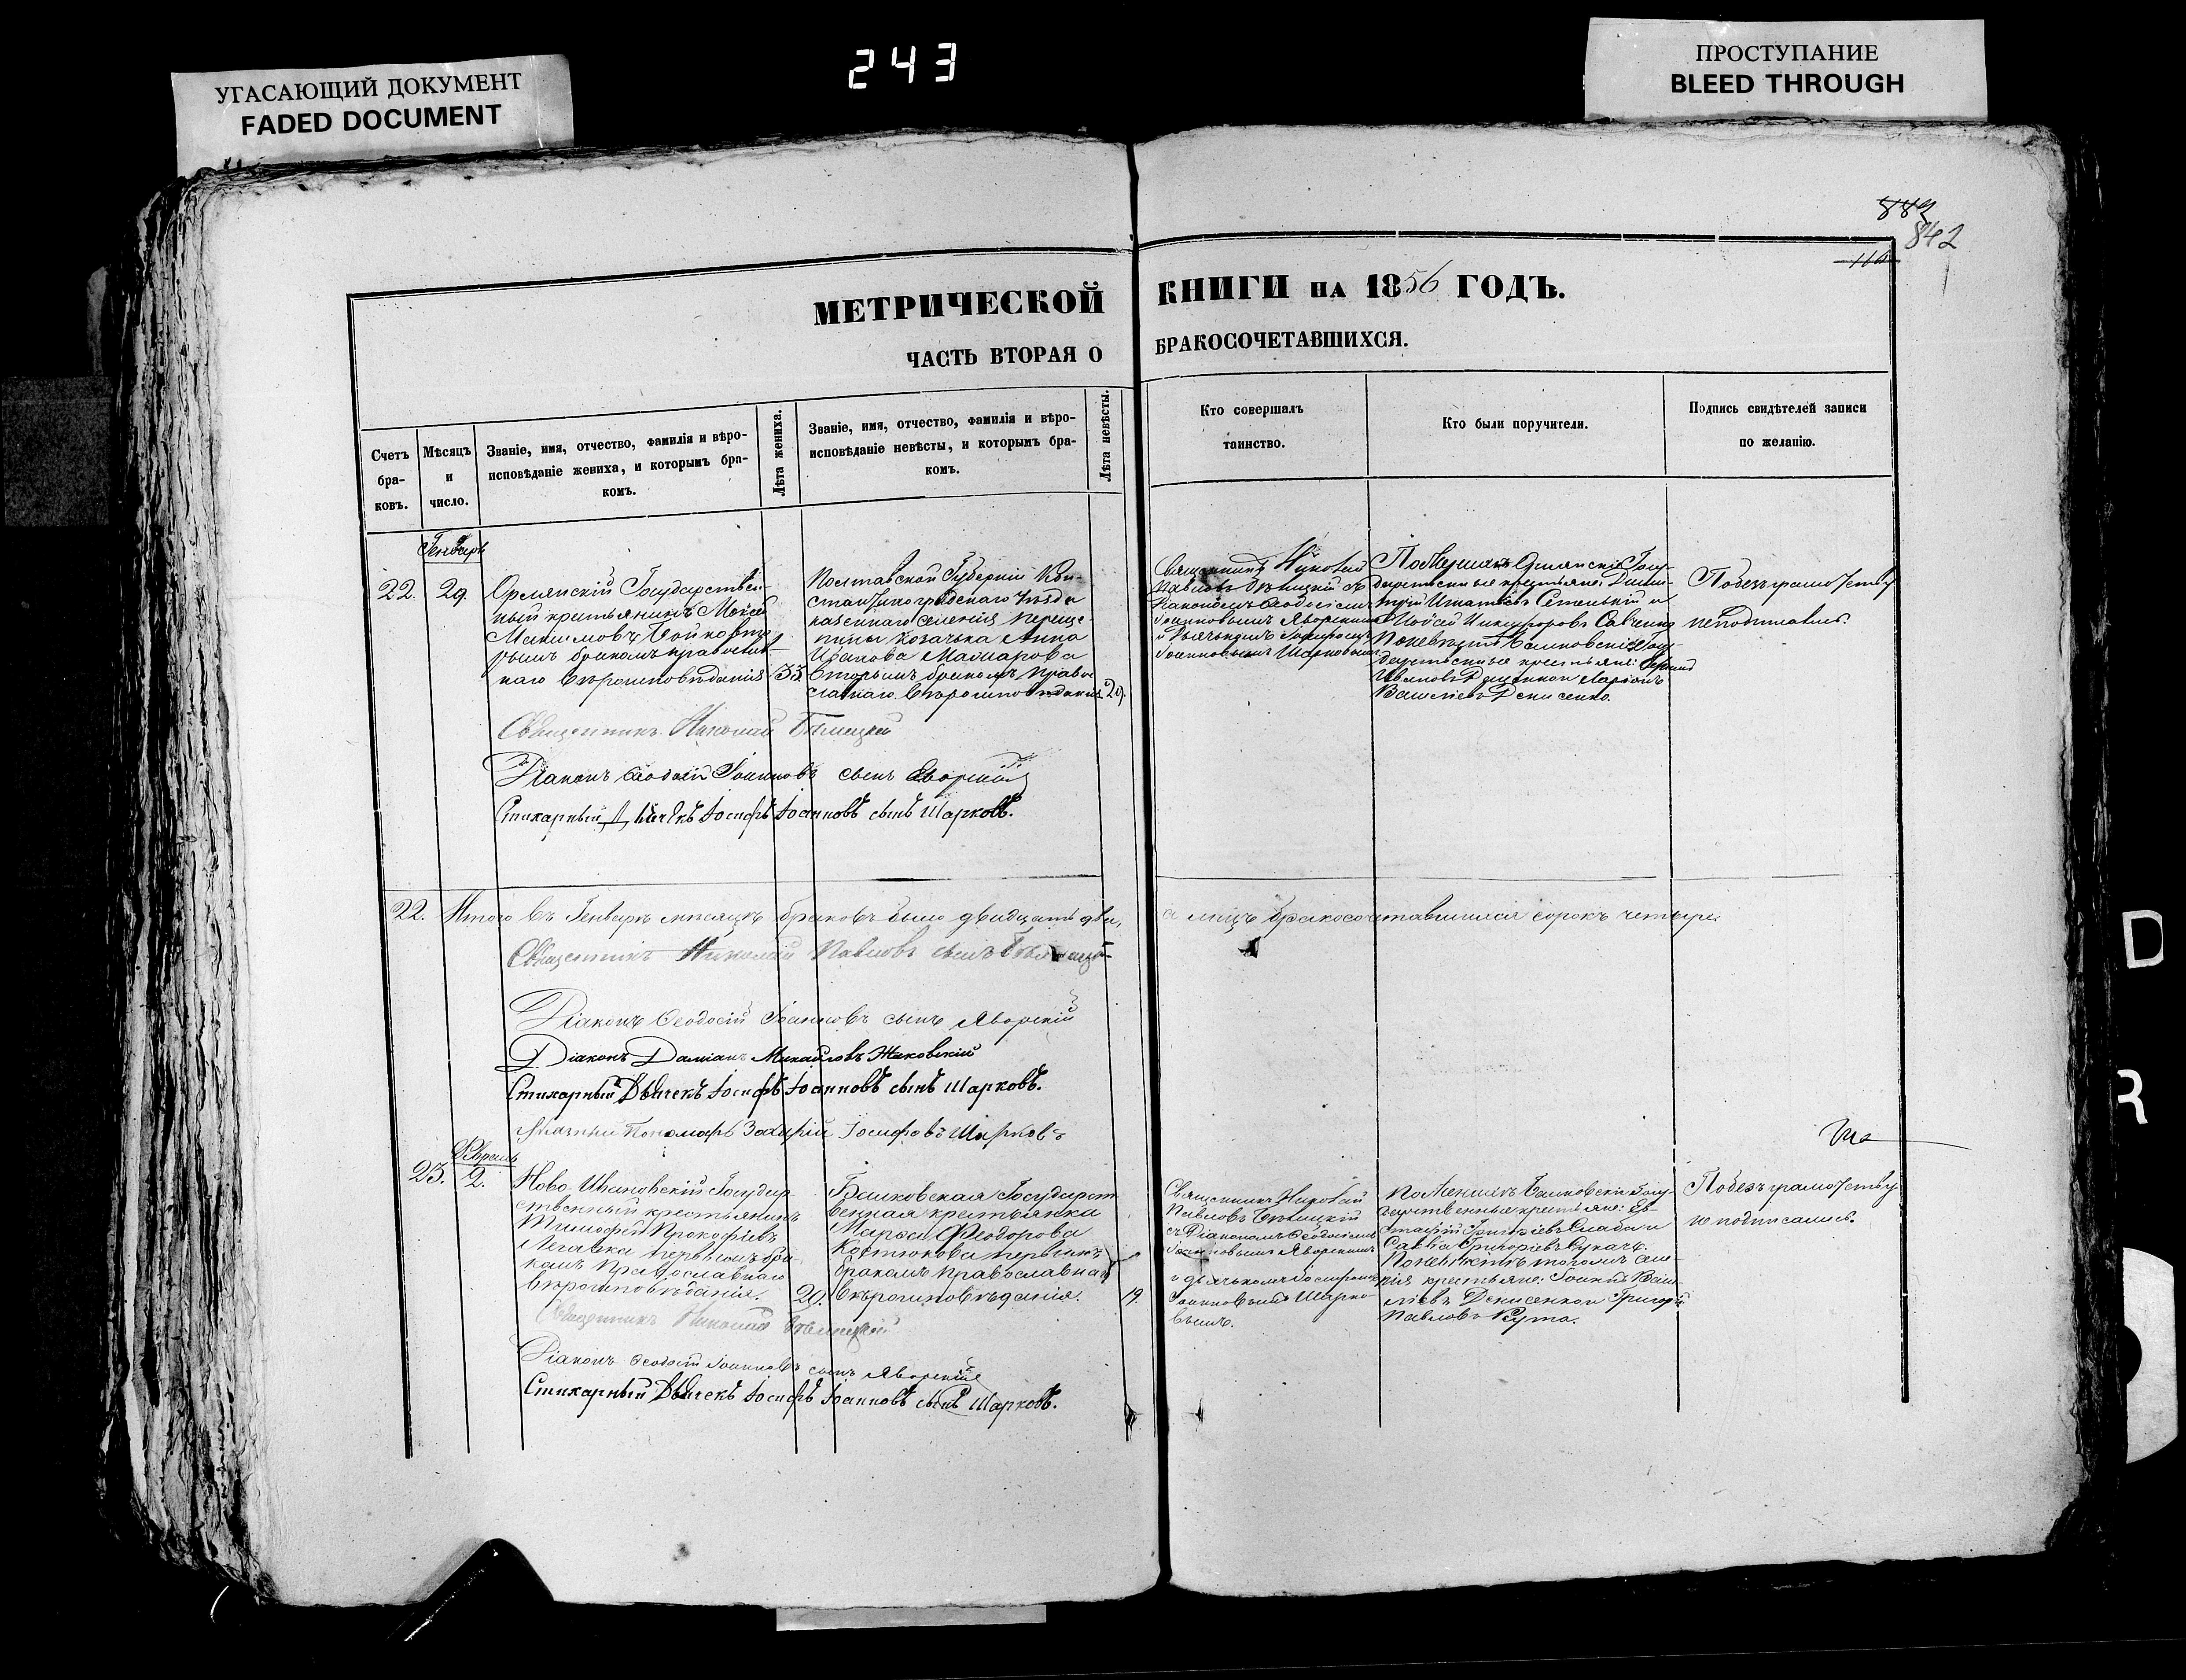 УГАСАЮЩИЙ ДОКУМЕНТ
FADED DOCUMENT
243
ПРОСТУПАНИЕ
BLEED THROUGH
842
МЕТРИЧЕСКОЙ КНИГИ НА 1856 ГОДЪ.
ЧАСТЬ ВТОРАЯ О БРАКОСОЧЕТАВШИХСЯ.
Счетъ бра-ковъ.
Мѣсяцъ и число.
Званіе, имя, отчество, фамилія и вѣро-
исповѣданіе жениха, и которымъ бра-
комъ.
Лѣта жениха.
Званіе, имя, отчество, фамилія и вѣро-
исповѣданіе невѣсты, и которымъ бра-
комъ.
Лѣта невѣсты.
Кто совершалъ
таинство.
Кто были поручители.
Подпись свидѣтелей записи
по желанію.
Генварь
22. 29.
Орлянскій Государствен-
ный крестьянинъ Моисей
Максимовъ
рымъ бракомъ православ-
наго вѣроисповѣданія 33.
Полтавской Губерніи Кон-
стантиноградскаго Уѣзда
казеннаго селенія Переще-
пины козачька Анна
Исакова
Вторымъ бракомъ Право
славнаго Вѣроисповѣданія 29.
Священникъ Николай
Павловъ Бѣлицкій съ
Діакономъ Ѳеодосіемъ
Іоанновымъ Яворскимъ
и Дьячькомъ Іосифомъ
Іоанновымъ Шарковымъ
По Женихѣ Орлянскіе Госу-
дарственные крестьяне: Дими-
трій Игнатіевъ и
Мойсей Никифоровъ Савченко
По невѣстѣ Балковскіе Госу-
дарственные крестьяне:
Ивановъ и Ларіонъ
Василіевъ Денисенко.
По безграмотству
неподписались
Священникъ Николай Бѣлицкій
Діаконъ Ѳеодосій Іоанновъ сынъ Яворскій
Стихарный Дьячекъ Іосифъ Іоанновъ сынъ Шарковъ.
22. Итого въ Генварѣ мѣсяцѣ браковъ было двадцать два, а лицъ бракосочетавшихся сорокъ четыре.
Священникъ Николай Павловъ сынъ Бѣлицкій
Діаконъ Ѳеодосій Іоанновъ сынъ Яворскій
Діаконъ Даміанъ Михайловъ Жаковскій
Стихарный Дьячекъ Іосифъ Іоанновъ сынъ Шарковъ.
Указный Пономарь Захарій Іосифовъ Шарковъ
Февраль
23. 2.
Ново-Ивановскій Государ-
ственный крестьянинъ
Тимофей Прокофіевъ
Легавка первымъ бра-
комъ Православнаго
вѣроисповѣданія. 20.
Балковская Государст-
венная крестьянка
Марья Феодорова
Костюкова первымъ
бракомъ Православнаго
вѣроисповѣданія. 19.
Священникъ Николай
Павловъ Бѣлицкій
съ Діакономъ Ѳеодосіемъ
Іоанновымъ Яворскимъ
и дьячькомъ Іосифомъ
Іоанновымъ Шарко-
вымъ.
По Женихѣ Балковскіе Госу-
дарственные крестьяне: Ев-
стафій Григоріевъ Слабый и
Савва Григоріевъ Сукачь.
По невѣстѣ тогожъ селе-
нія крестьяне: Іоаннъ Васи-
ліевъ Денисенко и Григорій
Павловъ Кута.
По безграмотству
не подписались.
Священникъ Николай Бѣлицкій
Діаконъ Ѳеодосій Іоанновъ сынъ Яворскій
Стихарный Дьячекъ Іосифъ Іоанновъ сынъ Шарковъ.